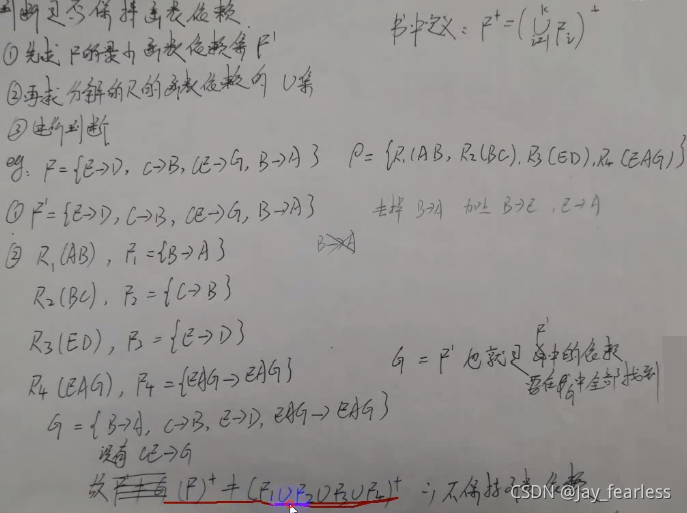 判断是否保持函数依赖
书中定义: F⁺=(⋃ᵢ₌₁ᵏ Fᵢ)⁺
①先求 F的最小函数依赖集F'
②再求分解的R的函数依赖的 U集
③进行判断
eg: F={E→D, C→B, CE→G, B→A} ρ={R₁(AB, R₂(BC), R₃(ED), R₄(EAG)}
① F'={E→D, C→B, CE→G, B→A}
去掉 B→A 加上 B→E, E→A
② R₁(AB), F₁={B→A}
B→A
R₂(BC), F₂={C→B}
R₃(ED), F₃={E→D}
R₄(EAG), F₄={EAG→EAG}
G = F' 也就是 F'中的依赖
要在G中全部找到
G={B→A, C→B, E→D, EAG→EAG}
没有 CE→G
故 (F)⁺≠(F₁∪F₂∪F₃∪F₄)⁺ ∴不保持函数依赖
CSDN @jay_fearless